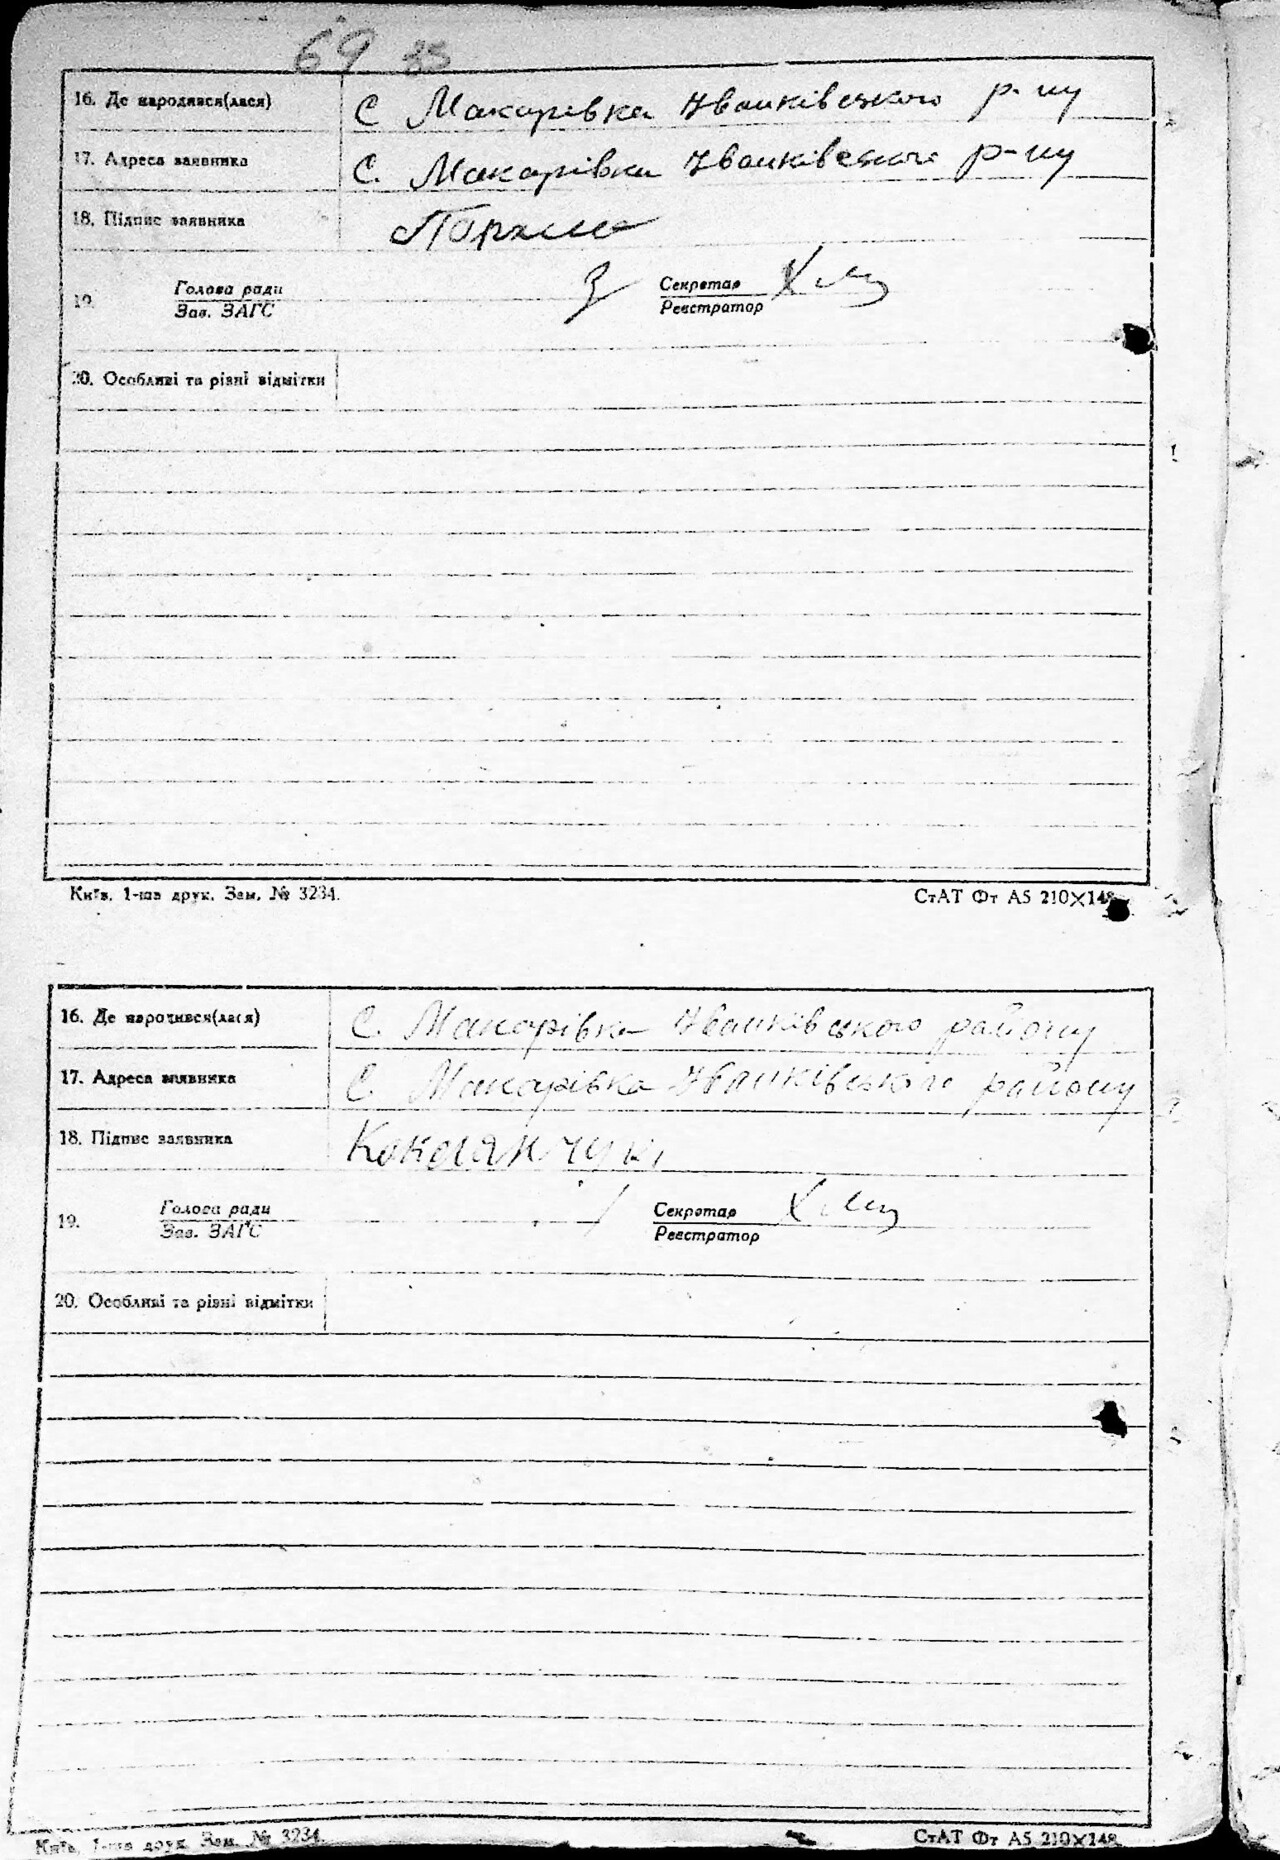 69 85
16. Де народився(лася) С Макарівка Іванківського р-ну
17. Адреса заявника С. Макарівка Іванківського р-ну
18. Підпис заявника
19. Голова ради Секретар
Зав. ЗАГС Реєстратор
20. Особливі та різні відмітки
Київ. 1-ша друк. Зам. № 3234. СтАТ Фт А5 210×148
16. Де народився(лася) С. Макарівка Іванківського району
17. Адреса заявника С. Макарівка Іванківського району
18. Підпис заявника
19. Голова ради Секретар
Зав. ЗАГС Реєстратор
20. Особливі та різні відмітки
Київ, 1-ша друк. Зам. № 3234. СтАТ Фт А5 210×148